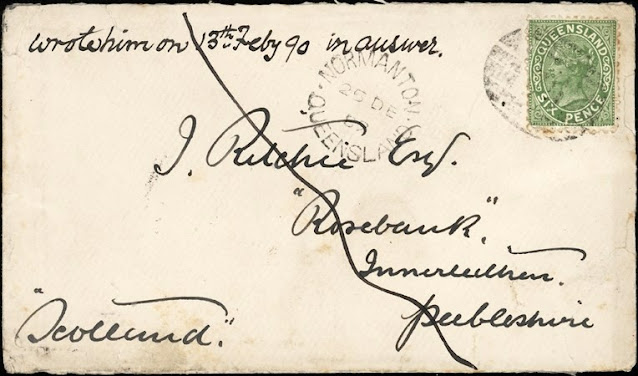 wrote him on 13th Feby 90 in answer.
NORMANTON
QUEENSLAND
DE
QUEENSLAND
SIX PENCE
J. Ritchie Esqr.
"Rosebank,"
Innerleithen.
Peeblesshire
"Scotland."